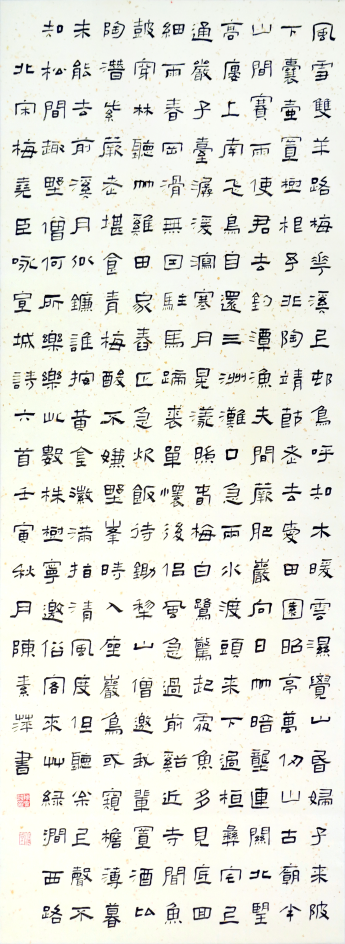 風雪雙羊路梅華溪上邨鳥呼知木暖雲濕覺山昏婦子來陂
下囊壺置樹根予非陶靖節老去愛田園昭亭萬仞山古廟半
山間賽雨使君去釣潭漁夫間蕨肥巖向日竹暗壟連關北望
高樓上南飛鳥自還三洲灘口急兩水渡頭來下過桓彝宅上
通嚴子臺潺湲瀉寒月晃漾照春梅白鷺驚起處魚多見底回
細雨春岡滑無回駐馬蹄裘單懷後侶風急過前谿近寺聞魚
鼓穿林聽竹雞田家舂正急炊飯待鋤犁山僧邀我輩置酒比
陶潛紫蕨老堪食青梅酸不嫌野峯時入座巖鳥或窺檐薄暮
未能去前溪月似鐮誰按黃金徽滿指清風度但聽余正聲不
知松間趣野僧何所樂樂此數株樹寧邀俗客來艸綠澗西路
北宋梅堯臣咏宣城詩六首壬寅秋月陳素萍書